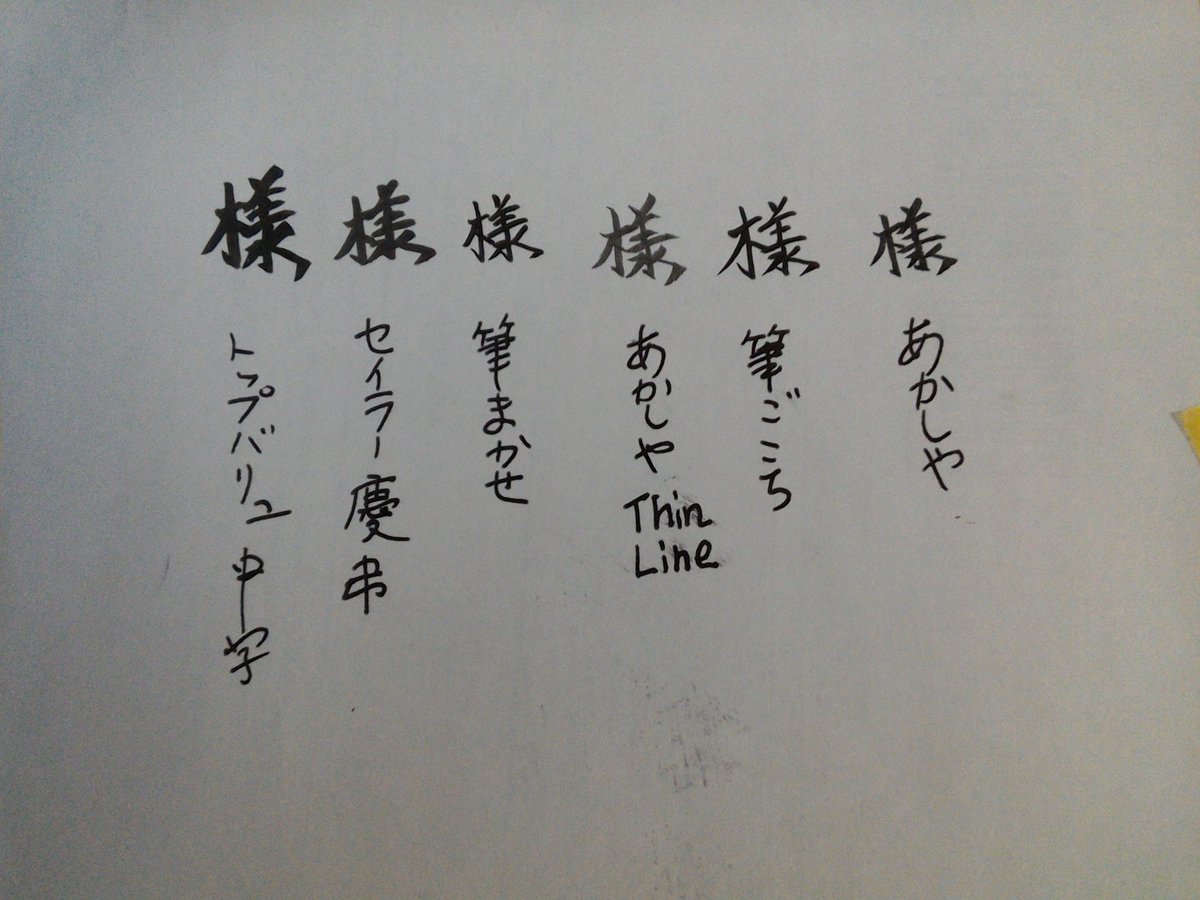 様
あかしや
様
筆ごこち
様
あかしや
Thin
Line
様
筆まかせ
様
セイラー慶弔
様
トップバリュ中字